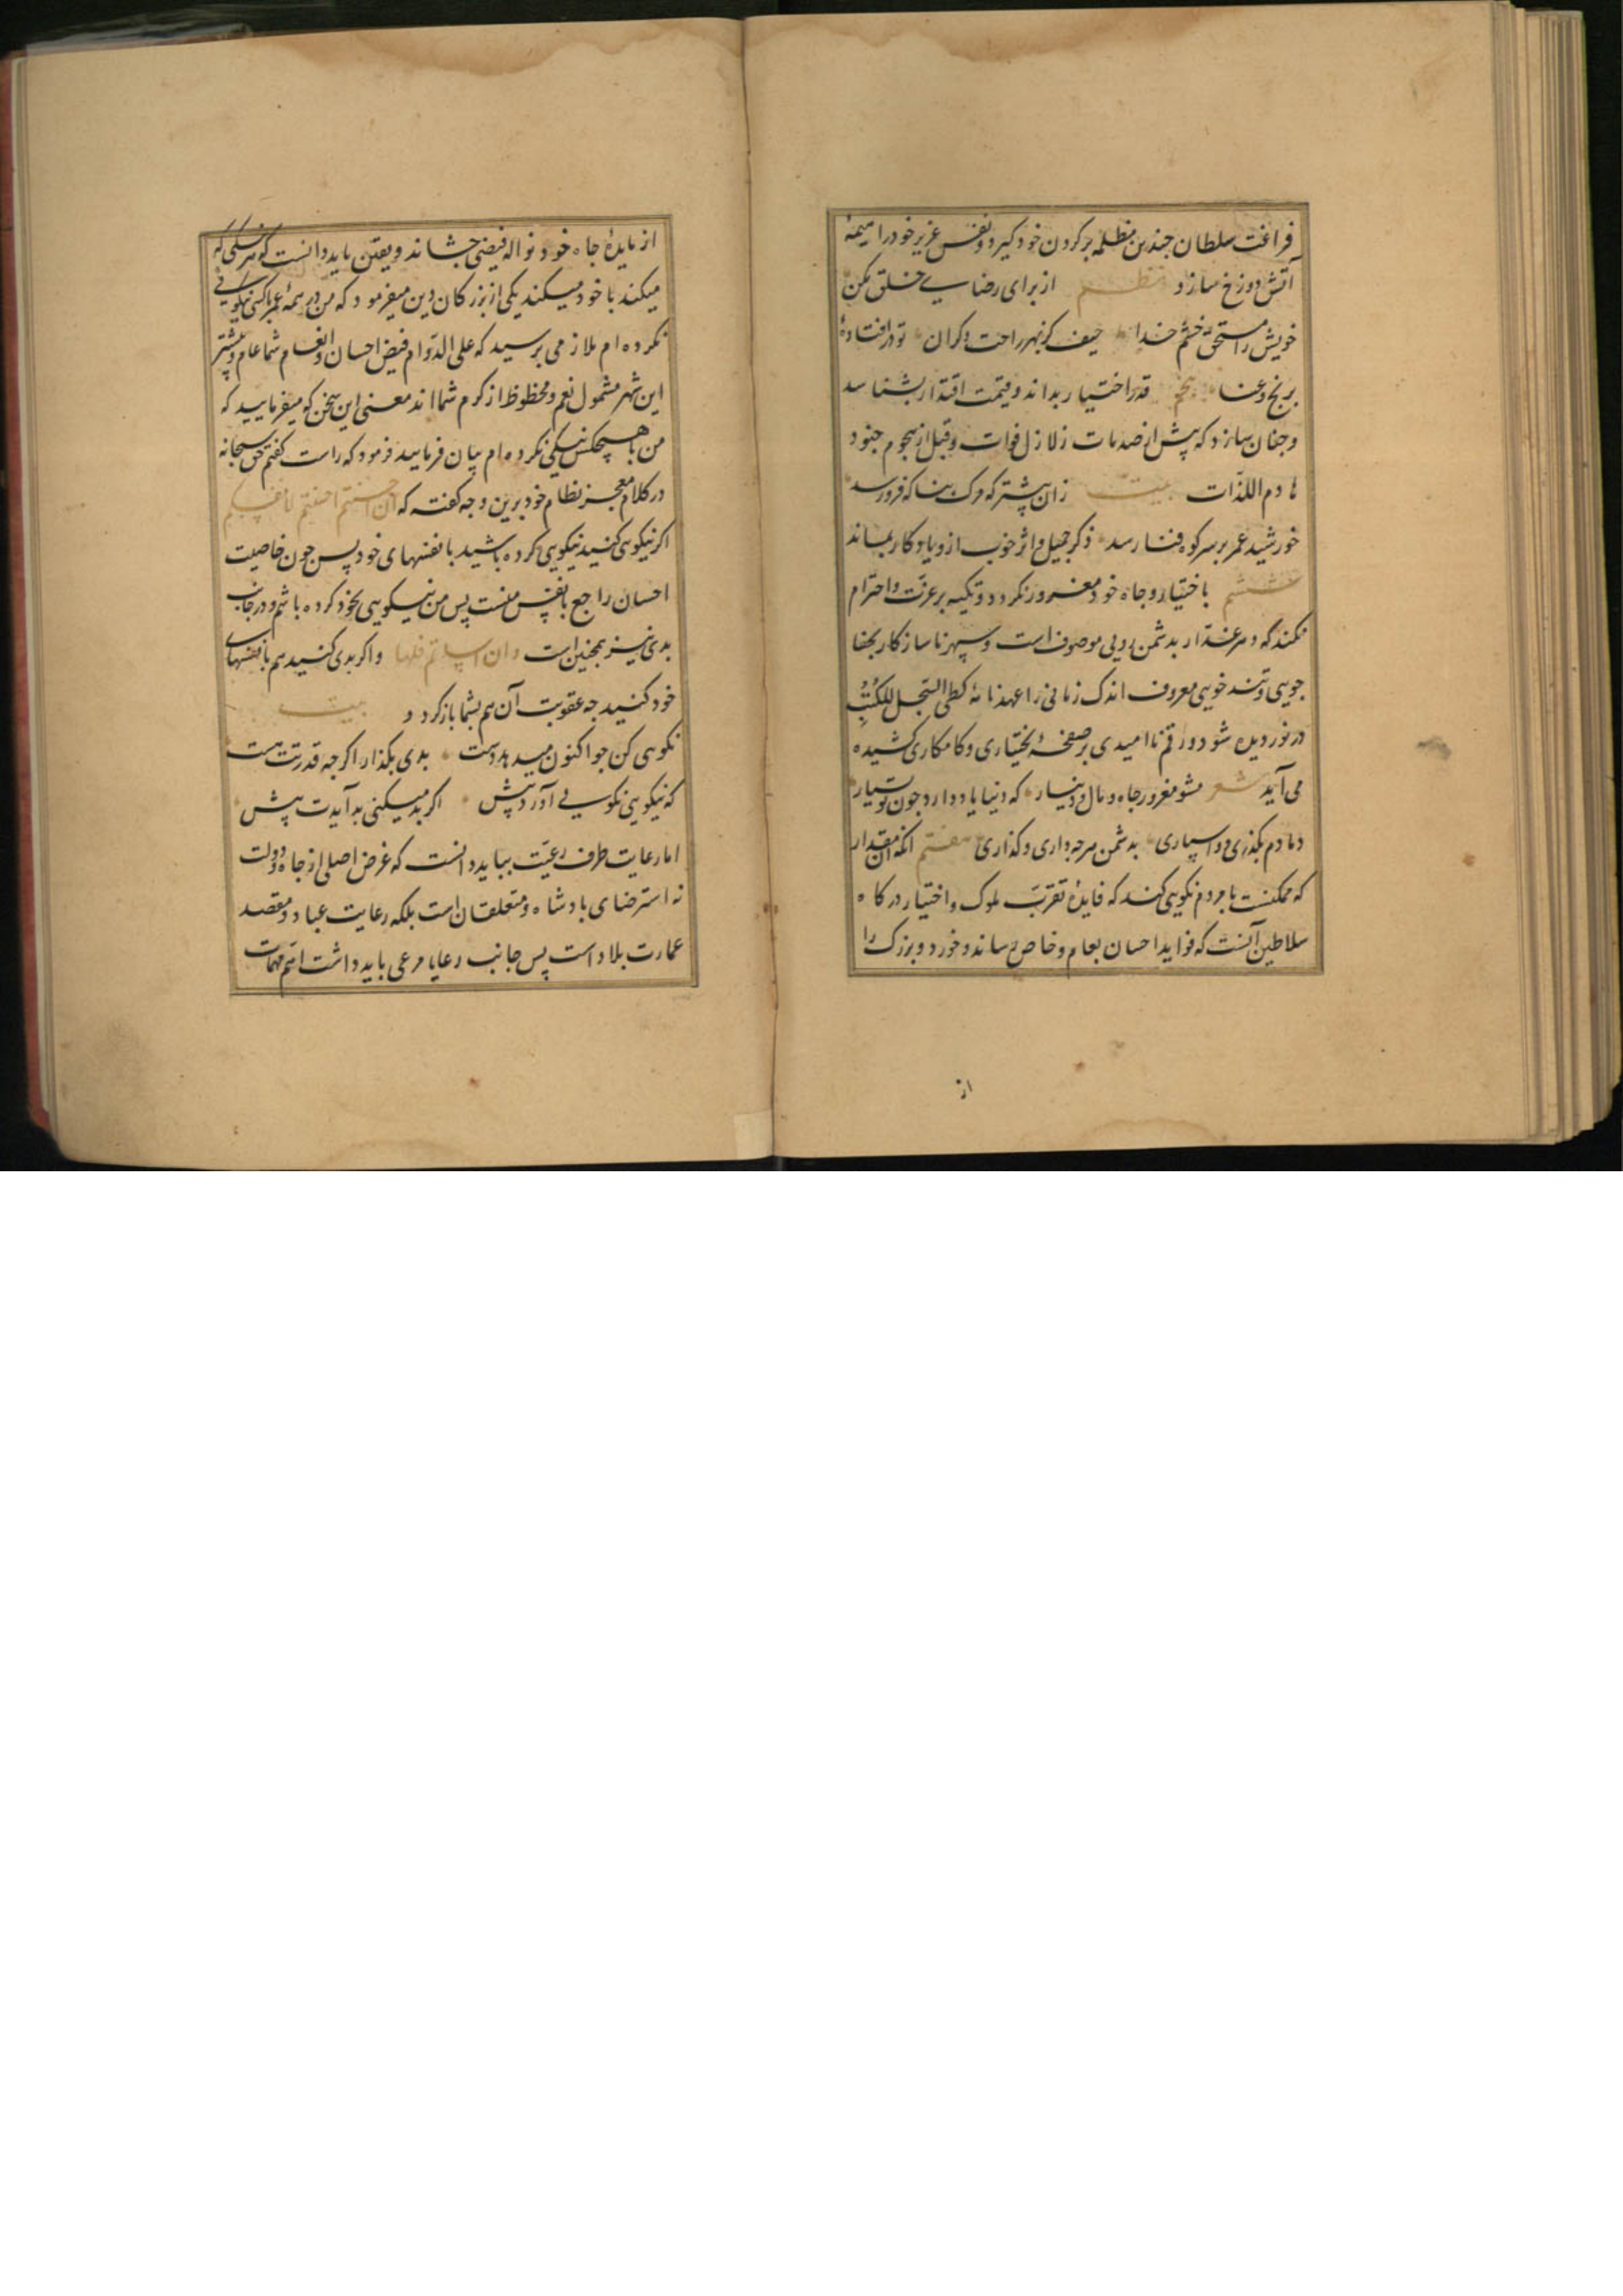 فراغت سلطان چندین مظلمه بر کردن خود کیرد و نفس عزیز خود را هیمهٔ
آتش دوزخ سازد نظم از برای رضای خلق مکن
خویش را مستحق خشم خدا حیف کز بهر راحت دکران تو در افتاده
برنج و عنا پنجم قدر اختیار بداند و قیمت اقتدار بشناسد
و چنان سازد که پیش از صدمات زلازل فوات و قبل از هجوم جنود
هادم اللذّات بیت زان پیشتر که مرک بناکه فرو رسد
خورشید عمر بر سر کوه فنا رسد ذکر جمیل و اثر خوب ازو یادکار بماند
ششم باختیار و جاه خود مغرور نکردد و تکیه بر عزّت و احترام
نکند که دهر غدّار بدشمن رویی موصوف است و سپهر ناسازکار بجفا
جویی و تند خویی معروف اندک زمانی را عهدنامهٔ کطی السّجل للکتب
در نوردیده شود و رقم ناامیدی بر صفحهٔ بختیاری و کامکاری کشیده
می آید شعر مشو مغرور جاه و مال و دنیار که دنیا یاد دارد چون تو بسیار
دمادم بکذری و واسپاری بدشمن هرچه داری و کذاری هفتم انکه آن مقدار
که ممکنست با مردم نکویی کند که فایدهٔ تقرّب ملوک و اختیار درکاه
سلاطین آنست که فواید احسان بعام و خاص رساند و خورد و بزرک را
از
از مایدهٔ جاه خود نواله فیضی چشاند و یقین باید دانست که هر نیکی که
میکند با خود میکند یکی از بزرکان دین میفرمود که من در همه عمر با کسی نیکویی
نکرده ام ملازمی پرسید که علی الدّوام فیض احسان و انعام شما عام و بیشتر
این شهر مشمول نعم و محظوظ از کرم شما اند معنی این سخن که میفرمایید که
من با هیچکس نیکی نکرده ام بیان فرمایید فرمود که راست کفتم حق سبحانه
در کلام معجز نظام خود برین وجه کفته که ان احسنتم احسنتم لانفسکم
اکر نیکویی کنید نیکویی کرده باشید با نفسهای خود پس چون خاصیت
احسان راجع بانفس منست پس من نیکویی بخود کرده باشم و در جانب
بدی نیز همچنین است و ان اسأتم فلها و اکر بدی کنید هم با نفسهای
خود کنید چه عقوبت آن هم بشما باز کردد بیت
نکویی کن چو اکنون میدهد دست بدی بکذار اکرچه قدرتت هست
که نیکویی نکویی آورد پیش اکر بد میکنی بد آیدت پیش
اما رعایت طرف رعیّت بباید دانست که غرض اصلی از جاه و دولت
نه استرضای پادشاه و متعلقان است بلکه رعایت عباد و مقصد
عمارت بلاد است پس جانب رعایا مرعی باید داشت اتم مهمات